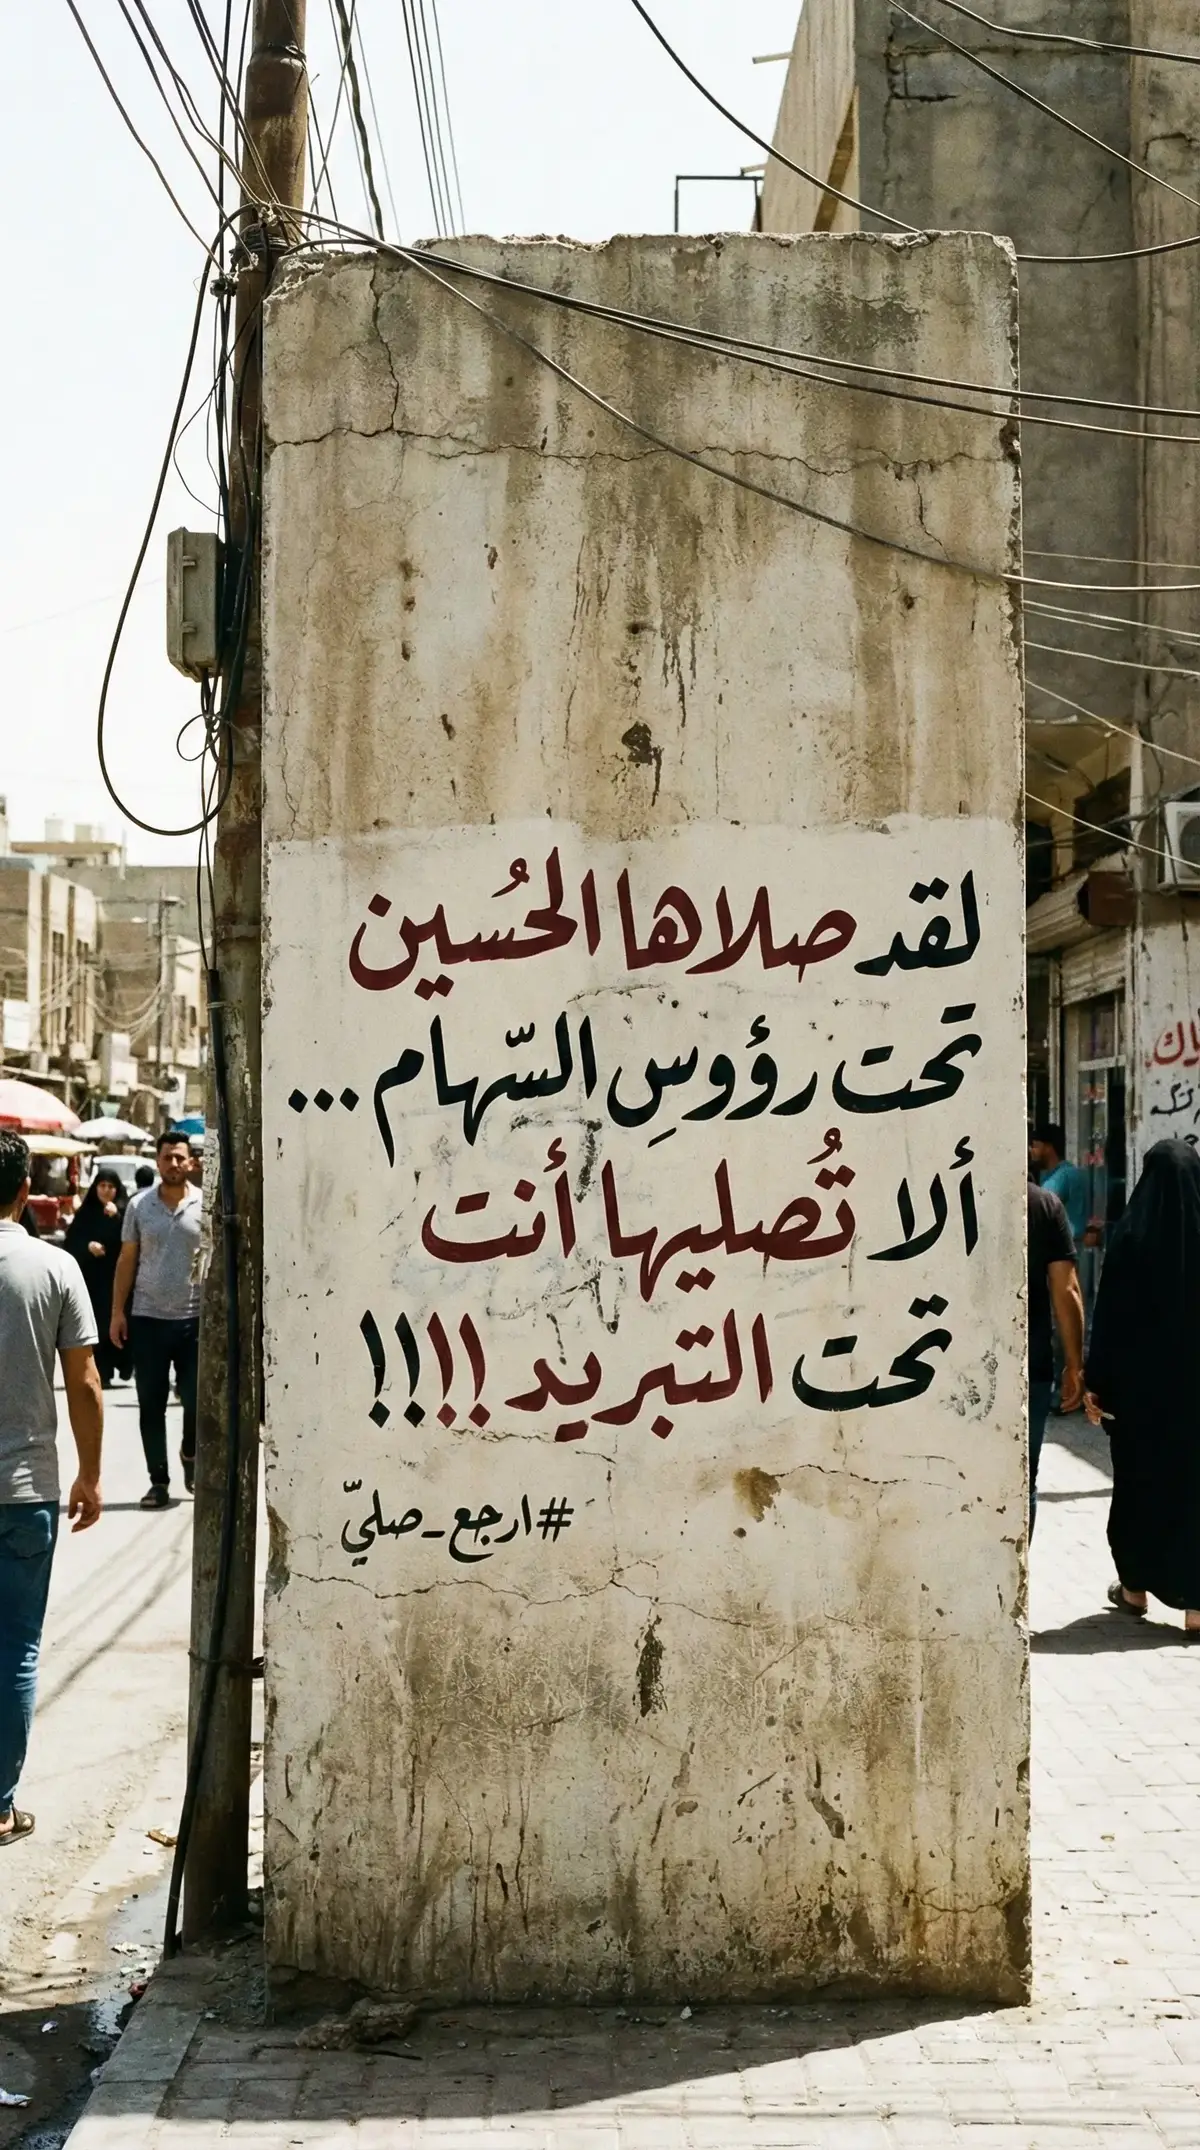 لقد صلاها الحُسين
تحت رؤوسِ السّهام ...
ألا تُصليها أنت
تحت التبريد !!!!
#ارجع_صليّ